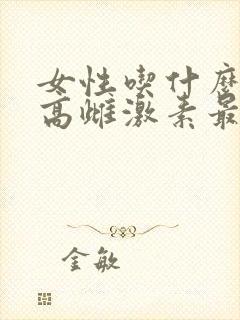 女性喫什麼
高雌激素最
金敏